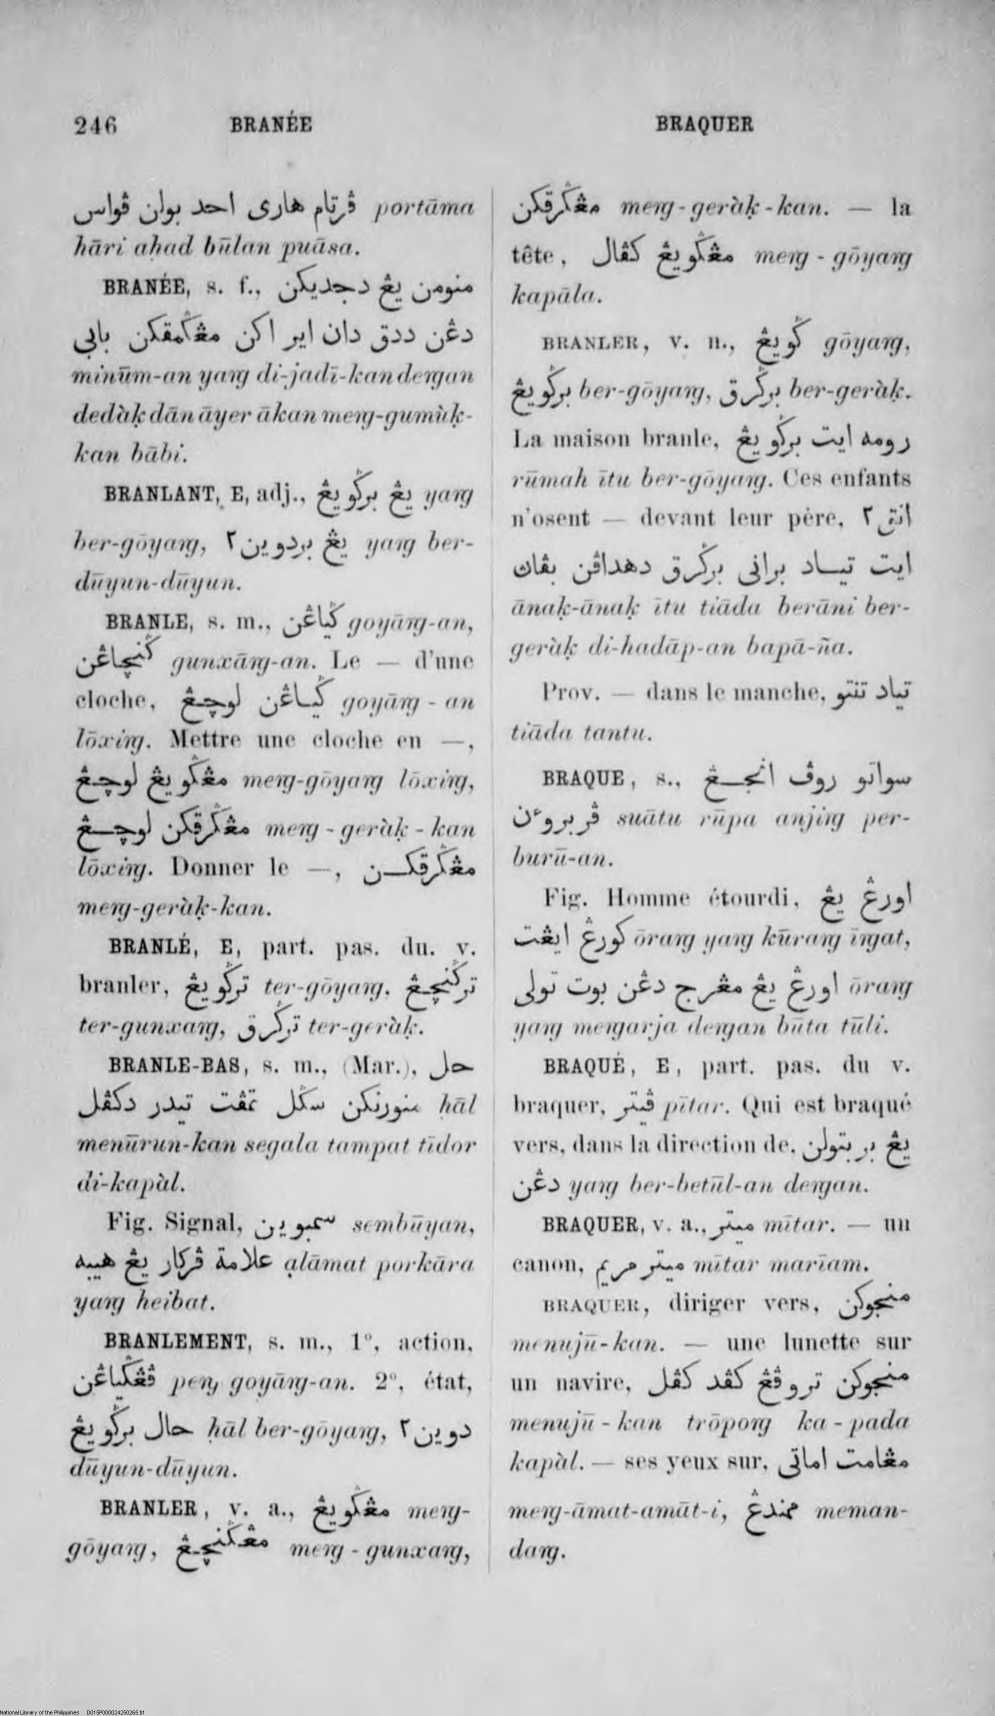 246 BRANÉE BRAQUER
ڤرتام هاري احد بولن ڤواس portāma
hāri aḥad būlan puāsa.
BRANÉE, s. f., منومن يڠ دجديكن
دڠن ددق دان اير اكن مڠݢمقكن بابي
minūm-an yaŋ di-jadī-kan deŋan
dedàḳ dān āyer ākan meŋ-gumùḳ-
kan bābi.
BRANLANT, E, adj., يڠ برݢويڠ yaŋ
ber-gōyaŋ, يڠ بردوين٢ yaŋ ber-
dūyun-dūyun.
BRANLE, s. m., ݢياڠن goyāŋ-an,
ݢنچاڠن gunxāŋ-an. Le — d'une
cloche, ݢياڠن لوچڠ goyāŋ-an
lōxiŋ. Mettre une cloche en —,
مڠݢويڠ لوچڠ meŋ-gōyaŋ lōxiŋ,
مڠݢرقكن لوچڠ meŋ-geràḳ-kan
lōxiŋ. Donner le —, مڠݢرقكن
meŋ-geràḳ-kan.
BRANLÉ, E, part. pas. du. v.
branler, ترݢويڠ ter-gōyaŋ, ترݢنچڠ
ter-gunxaŋ, ترݢرق ter-geràḳ.
BRANLE-BAS, s. m., (Mar.), حل
منورنكن سݢل تمڤت تيدر دكڤل hāl
menūrun-kan segala tampat tīdor
di-kapàl.
Fig. Signal, سمبوين sembūyan,
علامة ڤركار يڠ هيبه ạlāmat porkāra
yaŋ heibat.
BRANLEMENT, s. m., 1°, action,
ڤڠݢياڠن peŋ goyāŋ-an. 2°, état,
حال برݢويڠ ḥāl ber-gōyaŋ, دوين٢
dūyun-dūyun.
BRANLER, v. a., مڠݢويڠ meŋ-
gōyaŋ, مڠݢنچڠ meŋ-gunxaŋ,
مڠݢرقكن meŋ-geràḳ-kan. — la
tête, مڠݢويڠ كڤال meŋ-gōyaŋ
kapāla.
BRANLER, v. n., ݢويڠ gōyaŋ,
برݢويڠ ber-gōyaŋ, برݢرق ber-geràḳ.
La maison branle, رومه ايت برݢويڠ
rūmah ītu ber-gōyaŋ. Ces enfants
n'osent — devant leur père, انق٢
ايت تياد براني برݢرق دهداڤن بڤاڽ
ānaḳ-ānaḳ ītu tiāda berāni ber-
geràḳ di-hadāp-an bapā-ña.
Prov. — dans le manche, تياد تنتو
tiāda tantu.
BRAQUE, s., سواتو روڤ انجڠ
ڤربروءن suātu rūpa anjiŋ per-
burū-an.
Fig. Homme étourdi, اورڠ يڠ
كورڠ ايڠت ōraŋ yaŋ kūraŋ īŋat,
اورڠ يڠ مڠرج دڠن بوت تولي ōraŋ
yaŋ meŋarja deŋan būta tūli.
BRAQUÉ, E, part. pas. du v.
braquer, ڤيتر pītar. Qui est braqué
vers, dans la direction de, يڠ بربتولن
دڠن yaŋ ber-betūl-an deŋan.
BRAQUER, v. a., ميتر mītar. — un
canon, ميتر مريم mītar marīam.
BRAQUER, diriger vers, منجوكن
menujū-kan. — une lunette sur
un navire, منجوكن تروڤڠ كڤد كڤل
menujū-kan trōpoŋ ka-pada
kapàl. — ses yeux sur, مڠامت اماتي
meŋ-āmat-amāt-i, ممندڠ meman-
daŋ.
National Library of the Philippines